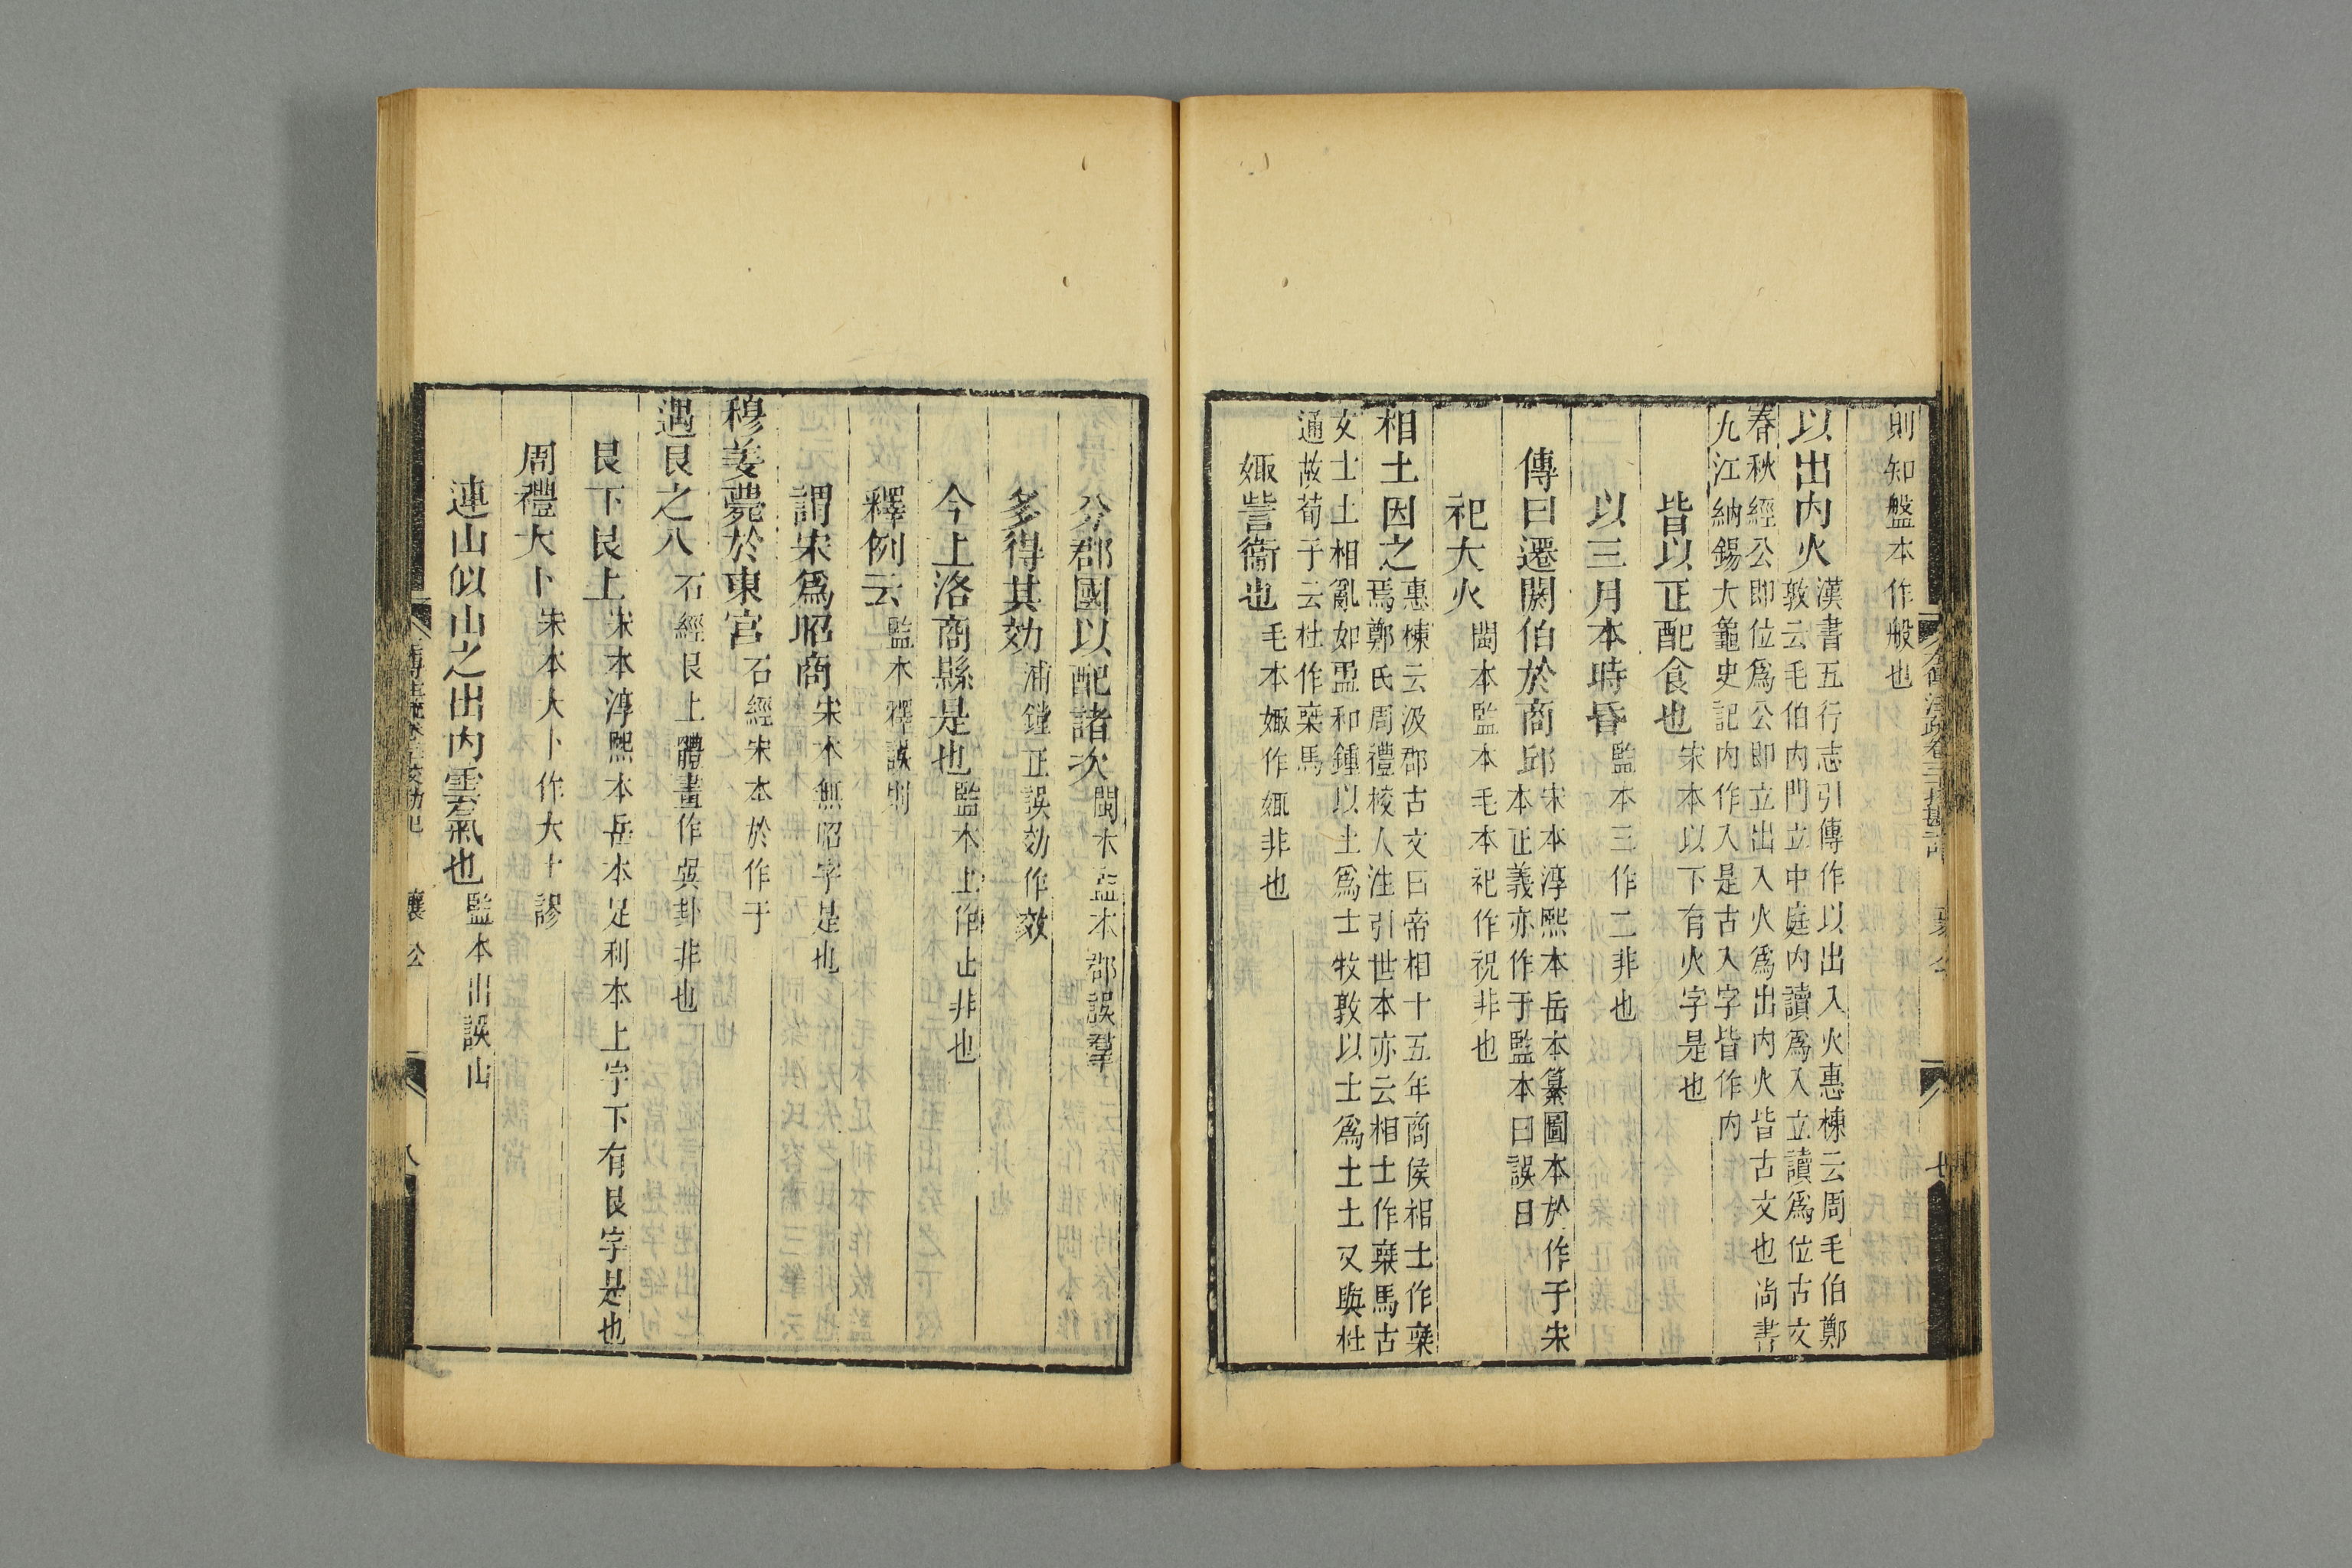 則知盤本作般也
以出內火漢書五行志引傳作以出入火惠棟云周毛伯鄭
敦云毛伯內門立中庭內讀爲入立讀爲位古文
春秋經公即位爲公即立出入火爲出內火皆古文也尚書
九江納錫大龜史記內作入是古入字皆作內
皆以正配食也宋本以下有火字是也
以三月本時昏監本三作二非也
傳曰遷閼伯於商邱宋本淳熙本岳本纂圖本於作于宋
本正義亦作于監本曰誤日
祀大火閩本監本毛本祀作祝非也
相土因之惠棟云汲郡古文曰帝相十五年商侯相土作乘
馬鄭氏周禮校人注引世本亦云相土作乘馬古
文士土相亂如盄和鍾以土爲士牧敦以士爲土土又與杜
通故荀子云杜作乘馬
娵訾衞也毛本娵作娵非也
分郡國以配諸次閩本監本郡誤羣
多得其効浦鏜正誤効作效
今上洛商縣是也監本上作止非也
釋例云監本釋誤則
謂宋爲昭商宋本無昭字是也
穆姜薨於東宮石經宋本於作于
遇艮之八石經艮上體畫作巽卦非也
艮下艮上宋本淳熙本岳本足利本上字下有艮字是也
周禮大卜宋本大卜作大十謬
連山似山之出內雲氣也監本出誤山
襄公
八